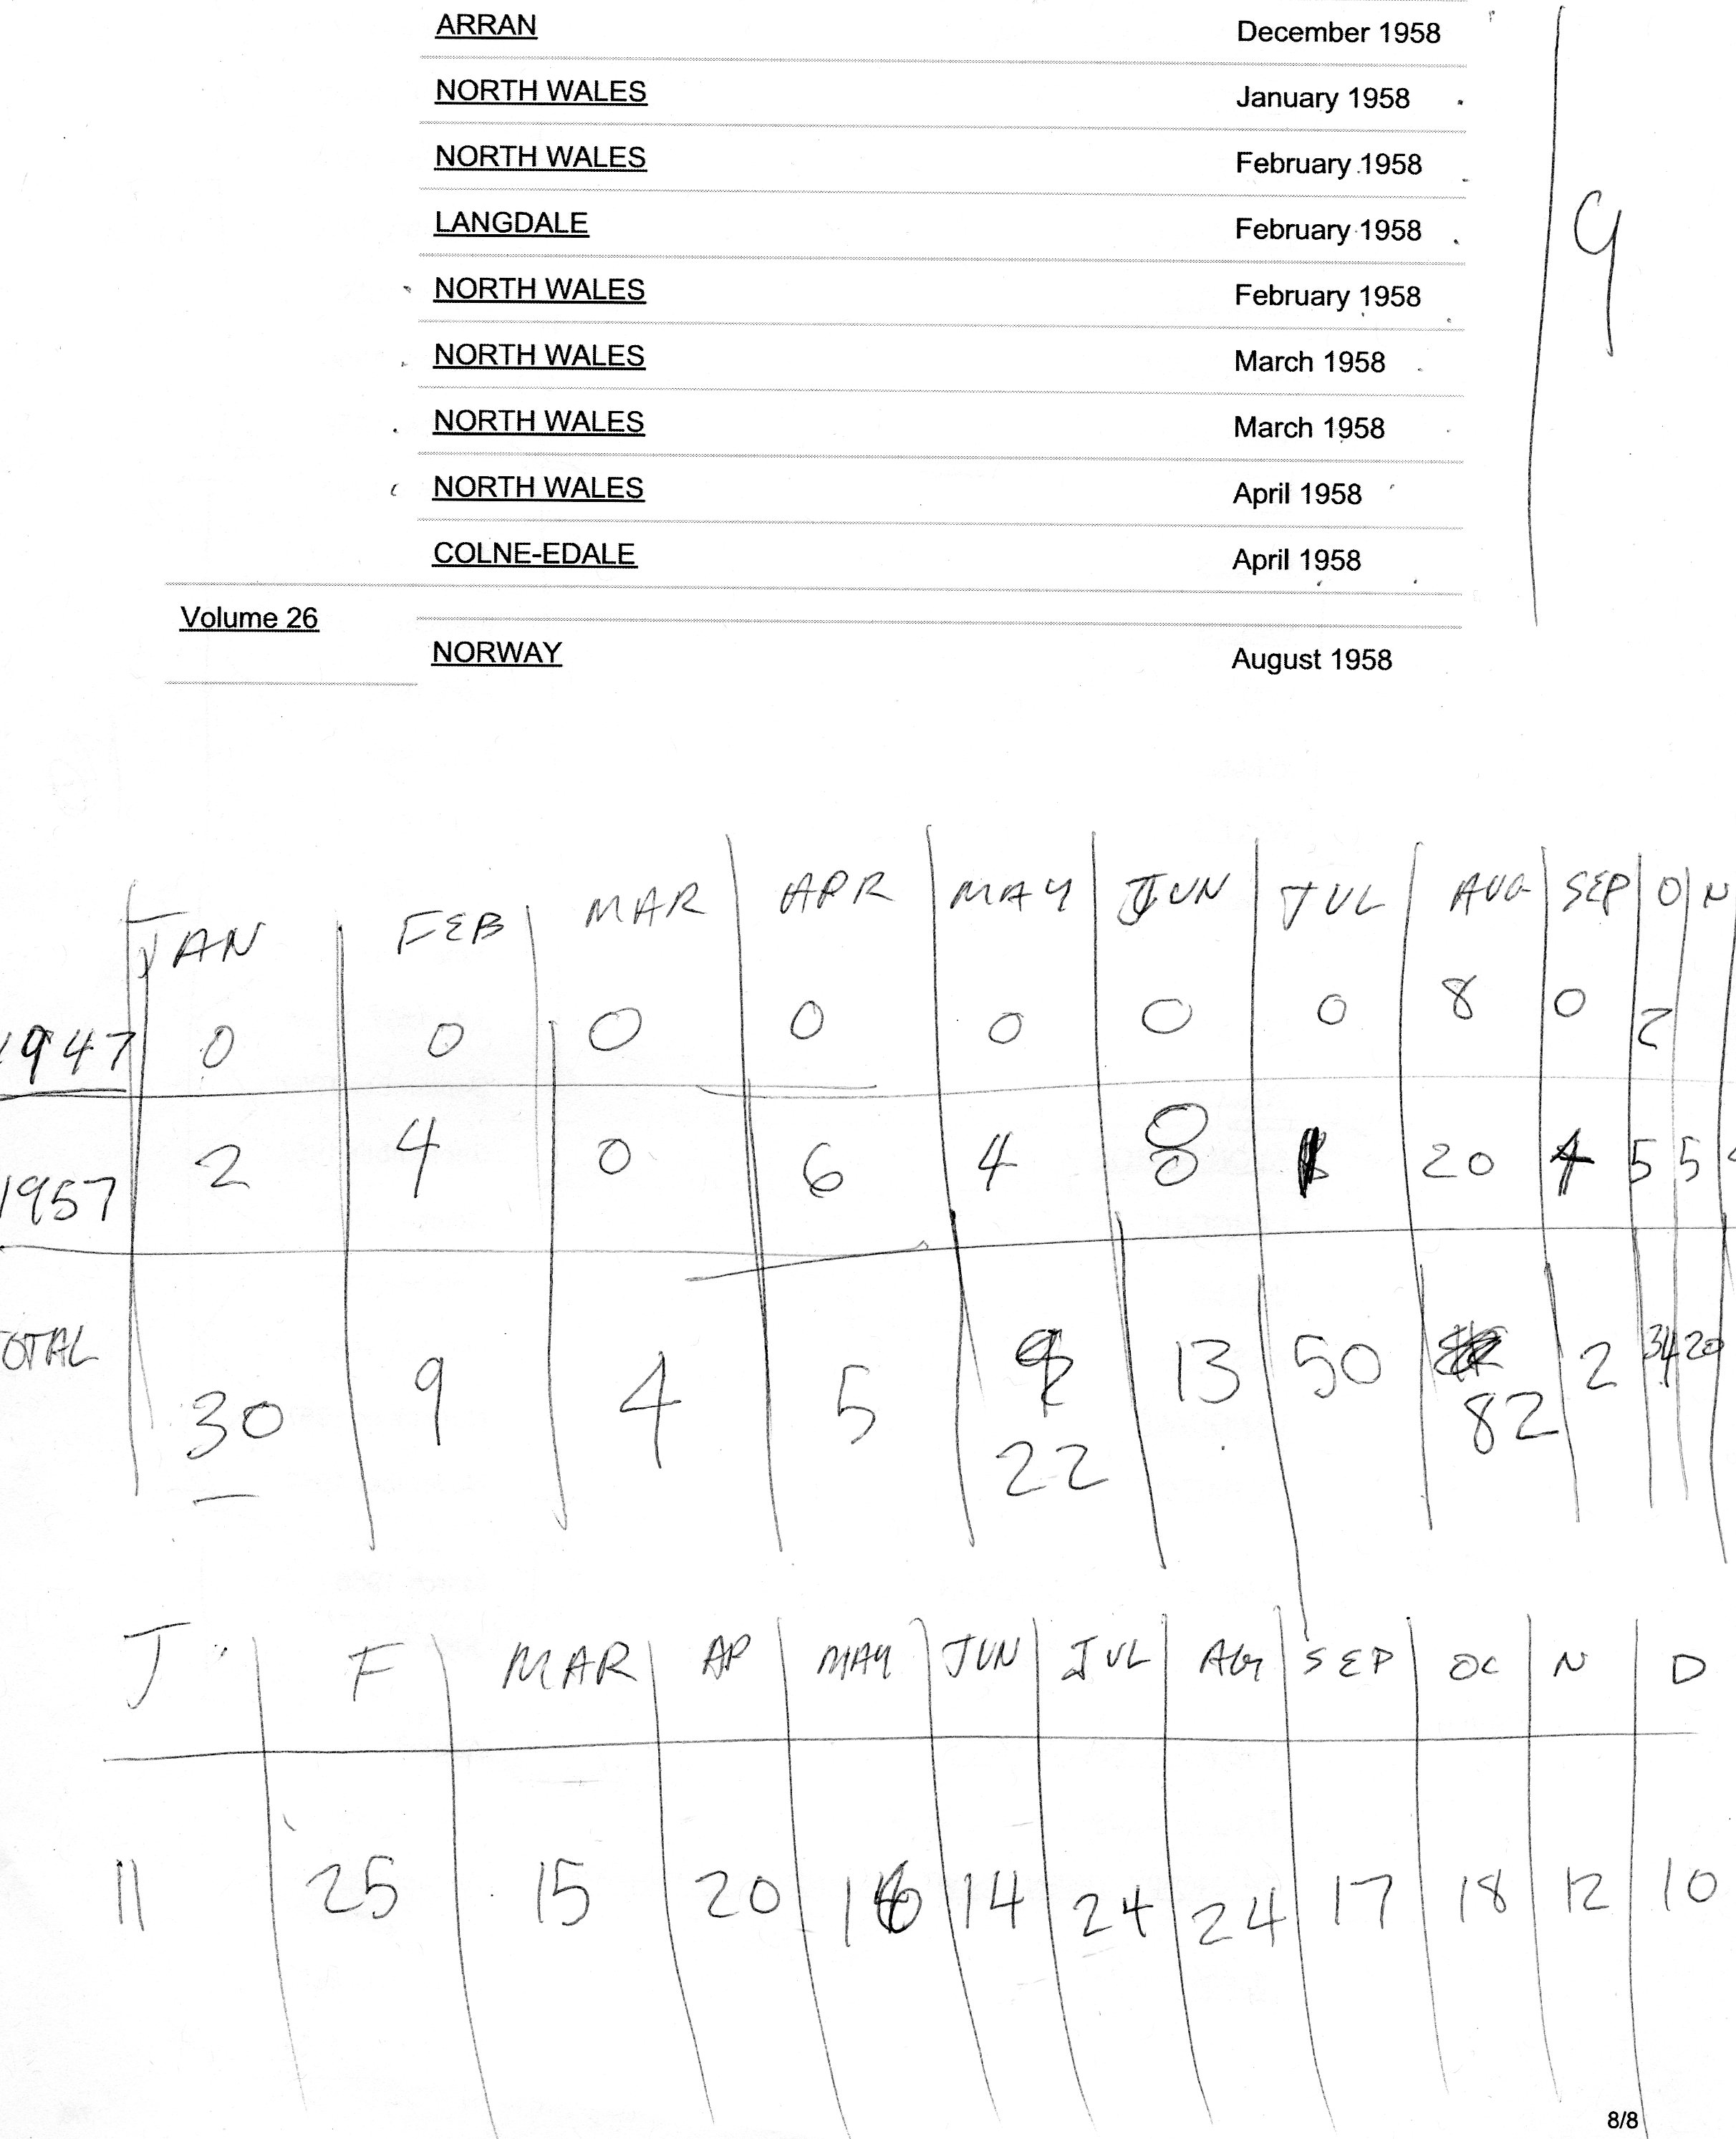 ARRAN December 1958
NORTH WALES January 1958
NORTH WALES February 1958
LANGDALE February 1958
9
NORTH WALES February 1958
NORTH WALES March 1958
NORTH WALES March 1958
NORTH WALES April 1958
COLNE-EDALE April 1958
Volume 26
NORWAY August 1958
JAN FEB MAR APR MAY JUN JUL AUG SEP O N
1947 0 0 0 0 0 0 0 8 0 2
1957 2 4 0 6 4 8 20 4 5 5
OTAL 30 9 4 5 22 13 50 82 2 34 20
J F MAR AP MAY JUN JUL AG SEP OC N D
11 25 15 20 16 14 24 24 17 18 12 10
8/8